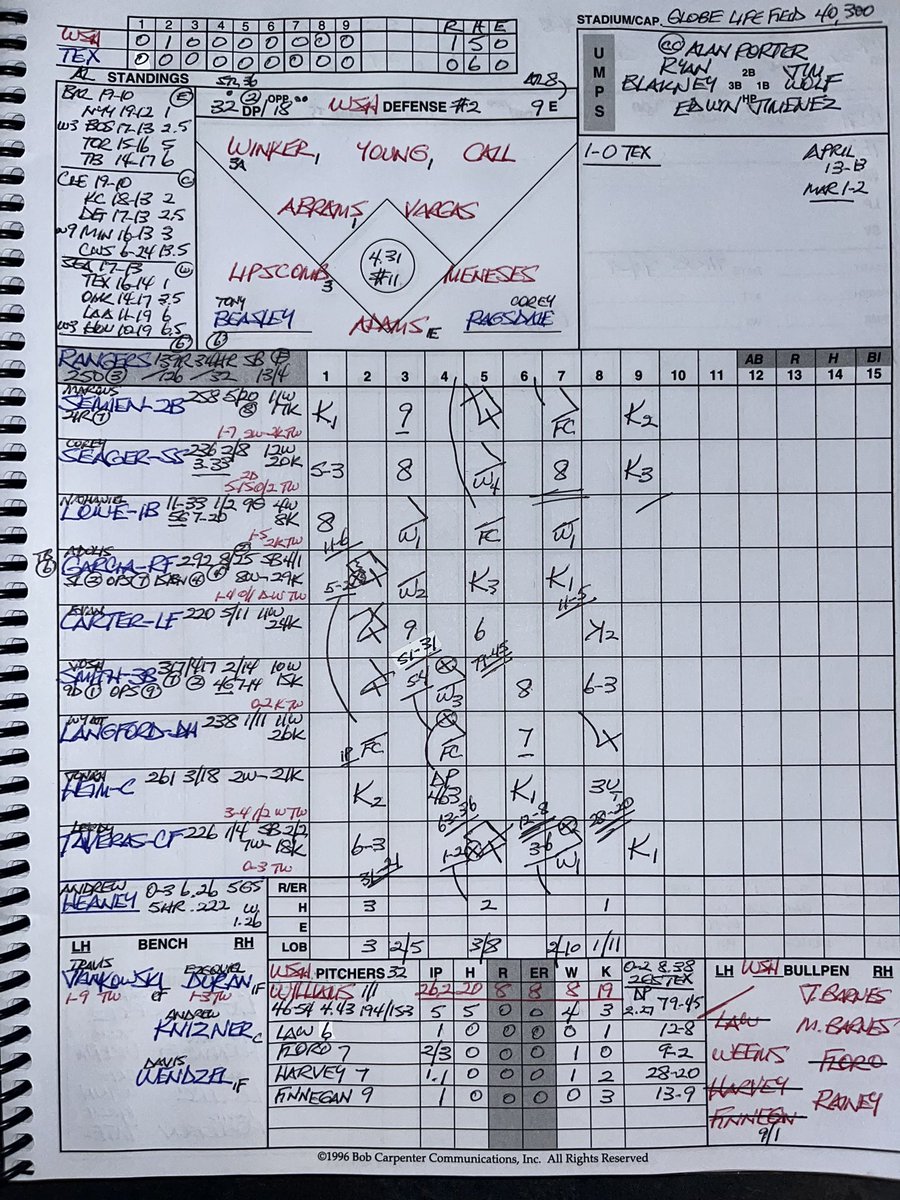 1 2 3 4 5 6 7 8 9 R H E
WSH 0 1 0 0 0 0 0 0 0 1 5 0
TEX 0 0 0 0 0 0 0 0 0 0 6 0
STADIUM/CAP. GLOBE LIFE FIELD 40,300
UMPS
ALAN PORTER
RYAN BLAKNEY 3B
2B
1B
TIM WOLF
HP
EDWIN JIMENEZ
AL STANDINGS
BAL 19-10 E
NYY 19-12 1
W3 BOS 17-13 2.5
TOR 15-16 5
TB 14-17 6
CLE 19-10 C
KC 18-13 2
DET 17-13 2.5
W9 MIN 16-13 3
CWS 6-24 13.5
SEA 17-13 W
TEX 16-14 1
OAK 14-17 3.5
LAA 11-19 6
W3 HOU 10-19 6.5
32 DP/ OPP 18 WSH DEFENSE #2 9 E
WINKER, YOUNG, CALL
ABRAMS VARGAS
LIPSCOMB 4.31 #11 MENESES
TONY BEASLEY ADAMS COREY RAGSDALE
1-0 TEX
APRIL
13-13
MAR 1-2
RANGERS 139R 34HR SB
250 /126 /32 13/4
1 2 3 4 5 6 7 8 9 10 11
AB R H BI
12 13 14 15
MARCUS SEMIEN-2B 258 5/20 11W 17K
K1 9 4 FC K2
1-7 2W-2K TW
COREY SEAGER-SS 236 2/8 12W 20K
5-3 8 W4 8 K3
NATHANIEL LOWE-1B 11-33 1/2 4W 8K
8 W1 FC W1
1-5 2K TW
ADOLIS GARCIA-RF 292 8/25 SB 4/1
8W-29K
W2 K3 K1
EVAN CARTER-LF 220 5/11 11W 24K
9 6 K2
JOSH SMITH-3B 317/417 2/14 10W 15K
W3 8 6-3
0-2 K TW
WYATT LANGFORD-DH 238 1/11 11W 26K
FC FC 7
JONAH HEIM-C 261 3/18 2W-21K
K2 DP 463 K1 3U
3-4 1/2 W TW
LEODY TAVERAS-CF 226 1/4 SB 2/2
7W-18K
6-3 W1 K1
0-3 TW
ANDREW HEANEY 0-3 6.26 5GS
5HR .222 W
1.26
R/ER
H 3 2 1
E
LOB 3 2/5 3/8 2/10 1/11
LH BENCH RH
TRAVIS JANKOWSKI CF
1-9 TW
EZEQUIEL DURAN IF
1-3 TW
ANDREW KNIZNER C
DAVIS WENDZEL IF
WSH PITCHERS 32 IP H R ER W K
0-2 8.38
WILLIAMS 26.2 20 8 8 8 19
46-54 4.43 194/153 5 5 0 0 4 3 79-45
LAW 6 1 0 0 0 0 1 12-8
FLORO 7 2/3 0 0 0 1 0 9-2
HARVEY 7 1.1 0 0 0 1 2 28-20
FINNEGAN 9 1 0 0 0 0 3 13-9
LH WSH BULLPEN RH
J. BARNES
LAW M. BARNES
WEEMS FLORO
HARVEY RAINEY
FINNEGAN
9/1
©1996 Bob Carpenter Communications, Inc. All Rights Reserved